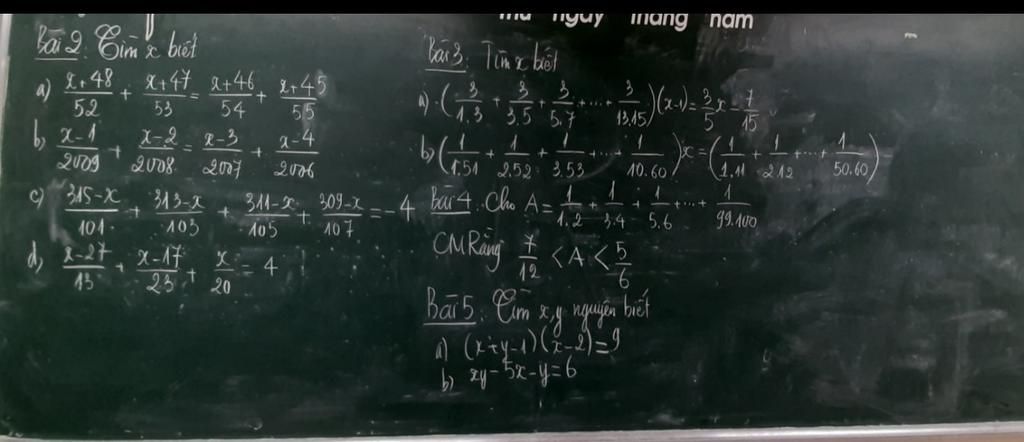 thứ ngày tháng năm
Bài 2: Tìm x biết
a) (x+48)/52 + (x+47)/53 = (x+46)/54 + (x+45)/55
b) (x-1)/2009 + (x-2)/2008 = (x-3)/2007 + (x-4)/2006
c) (315-x)/101 + (313-x)/103 + (311-x)/105 + (309-x)/107 = -4
d) (x-27)/13 + (x-17)/23 + x/20 = 4
Bài 3: Tìm x biết
a) (3/1.3 + 3/3.5 + 3/5.7 + ... + 3/13.15)(x-1) = 3/5 x - 7/15
b) (1/1.51 + 1/2.52 + 1/3.53 + ... + 1/10.60)x = (1/1.11 + 1/2.12 + ... + 1/50.60)
Bài 4: Cho A = 1/1.2 + 1/3.4 + 1/5.6 + ... + 1/99.100
CM Rằng 7/12 < A < 5/6
Bài 5: Tìm x,y nguyên biết
a) (x+y-1)(x-2)=9
b) xy-5x-y=6